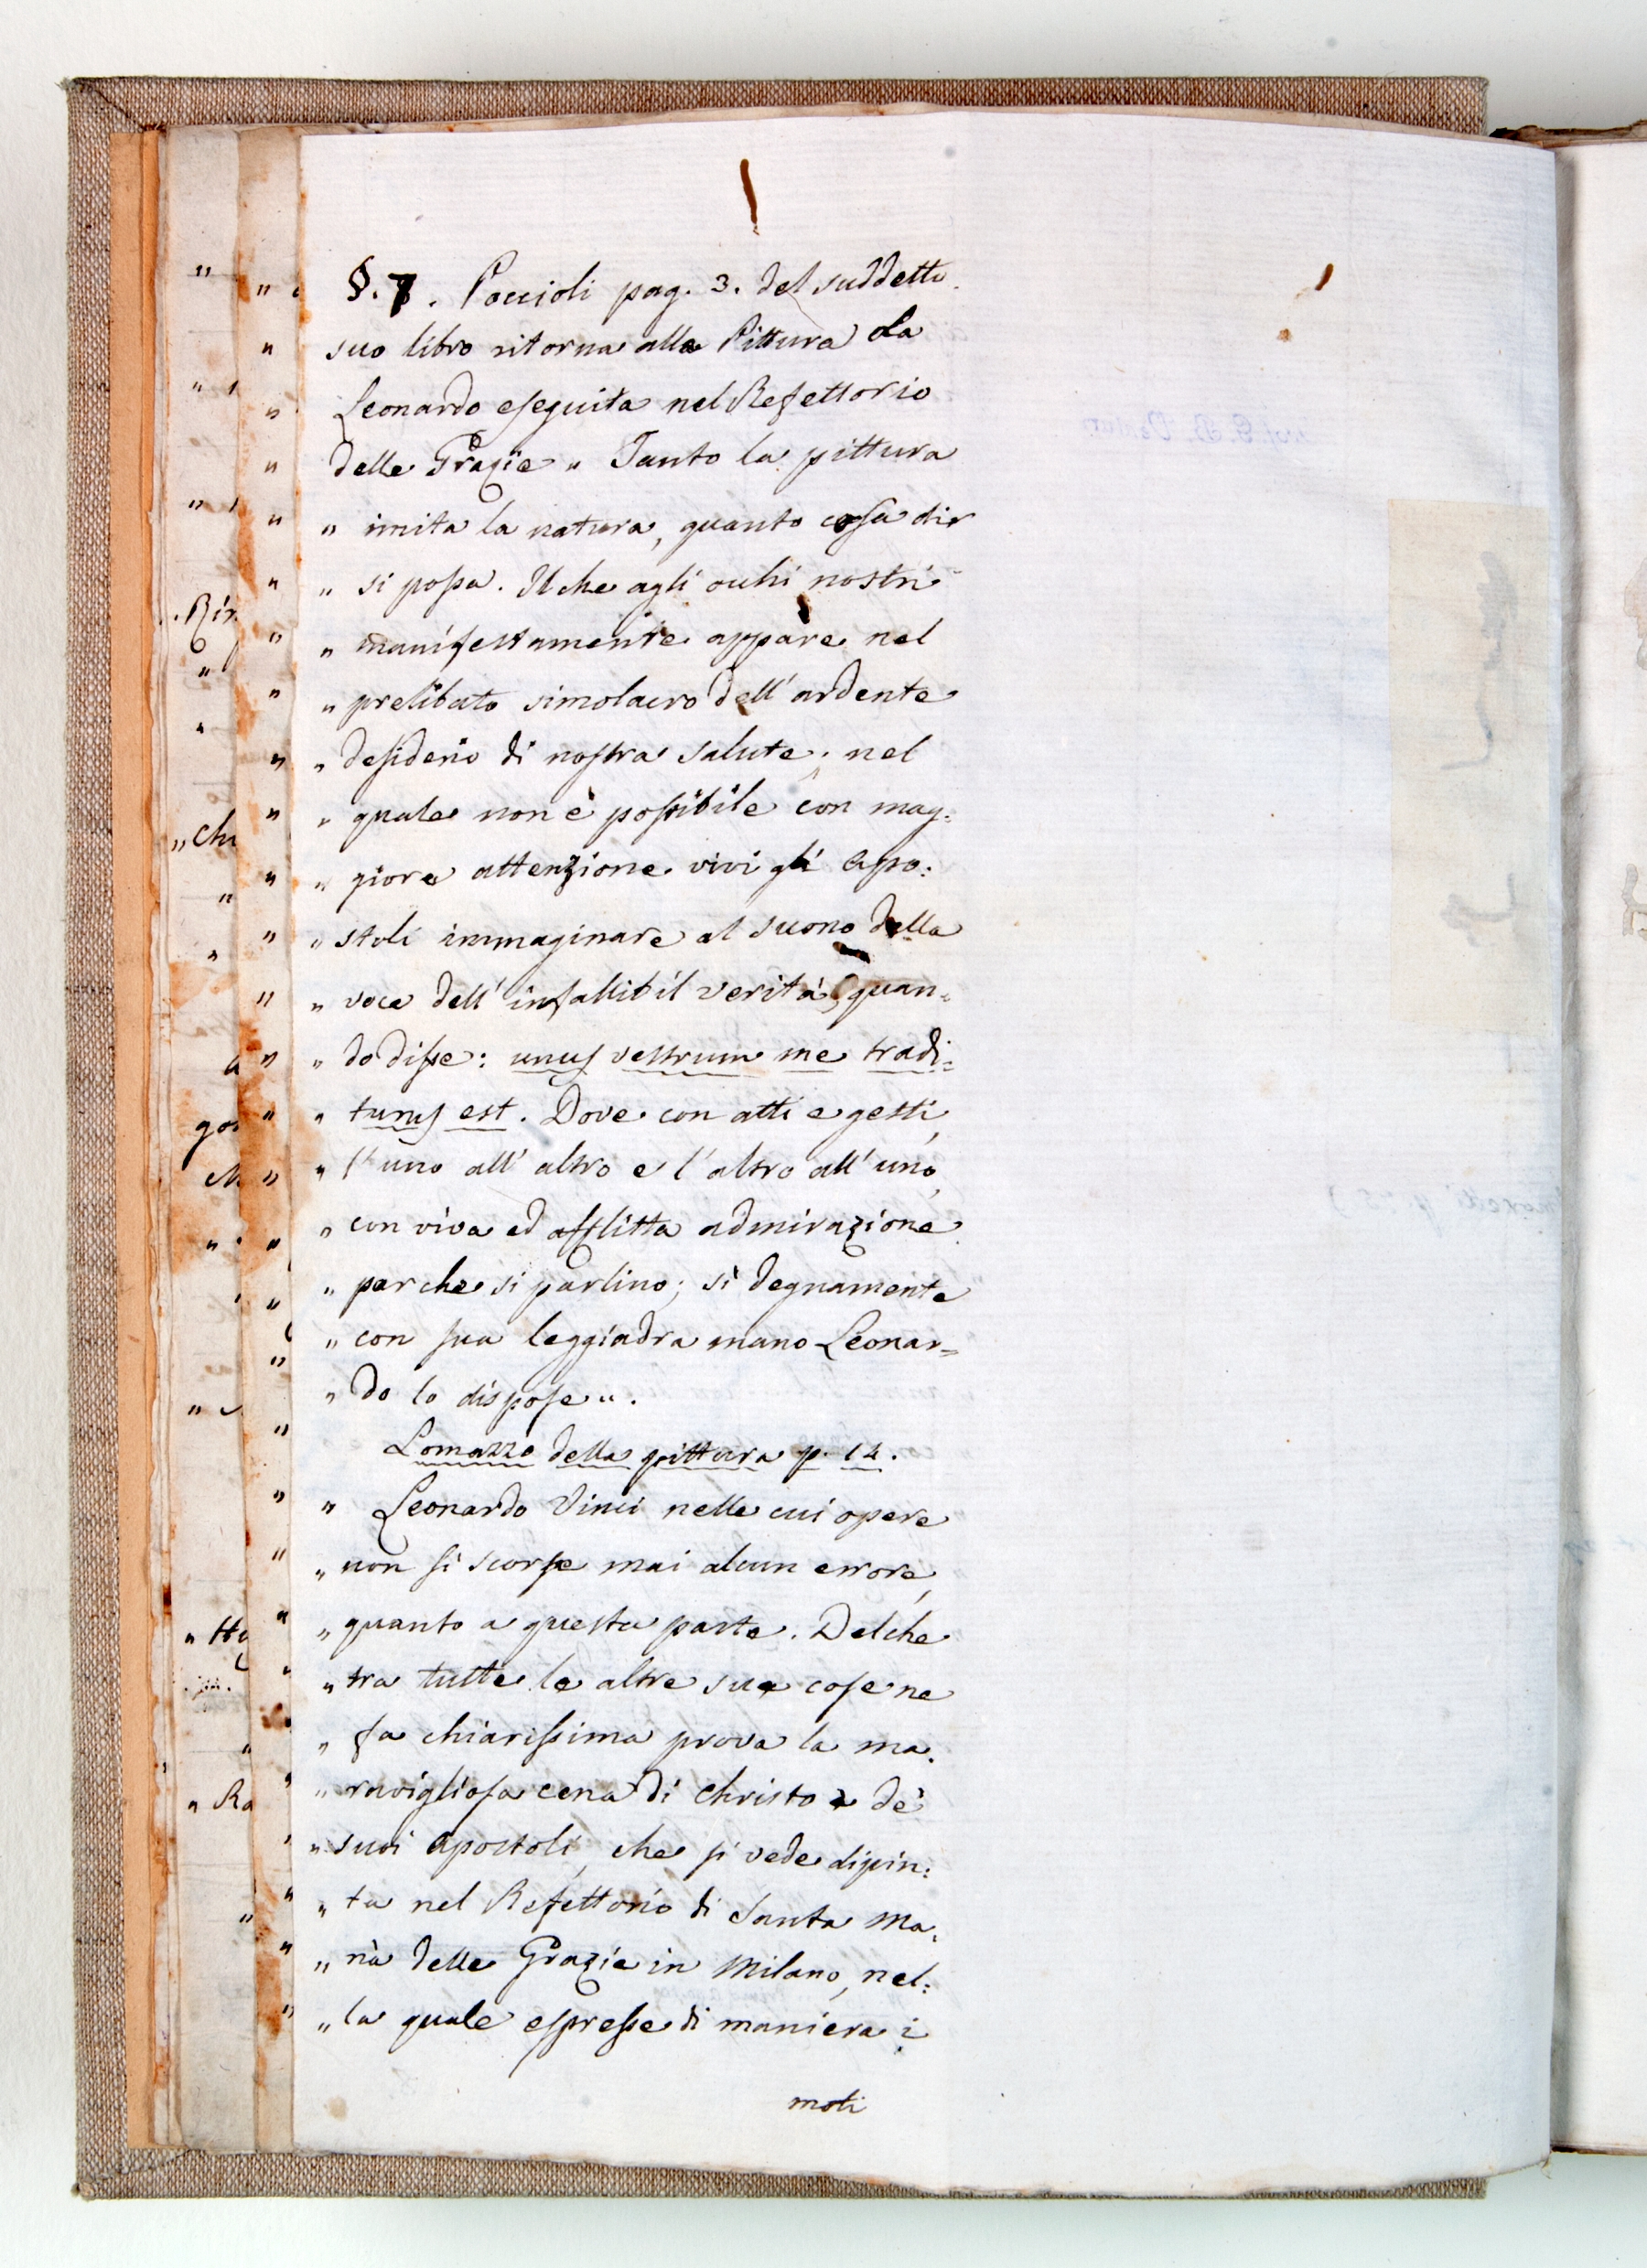 §. 7. Paccioli pag. 3. del suddetto
suo libro ritorna alla Pittura da
Leonardo eseguita nel Refettorio
delle Grazie „ Tanto la pittura
„ imita la natura, quanto cosa dir
„ si possa. Il che agli occhi nostri
„ manifestamente appare nel
„ prelibato simolacro dell' ardente
„ desiderio di nostra salute; nel
„ quale non è possibile con mag:
„ giore attenzione vivi gli Apo:
„ stoli immaginare al suono della
„ voce dell' infallibil verità, quan=
„ do disse: unus vestrum me tradi=
„ turus est. Dove con atti e gesti,
„ l' uno all' altro e l' altro all' uno,
„ con viva ed afflitta admirazione
„ par che si parlino; sì degnamente
„ con sua leggiadra mano Leonar=
„ do lo dispose „.
Lomazzo della pittura p. 14.
„ Leonardo Vinci nelle cui opere
„ non si scorse mai alcun errore,
„ quanto a questa parte. Del che
„ tra tutte le altre sue cose ne
„ fa chiarissima prova la ma:
„ ravigliosa cena di Christo e de'
„ suoi Apostoli, che si vede dipin:
„ ta nel Refettorio di Santa Ma:
„ ria delle Grazie in Milano, nel:
„ la quale espresse di maniera i
moti